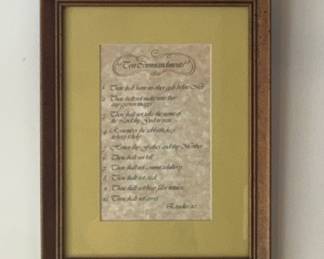 Ten Commandments
1. Thou shalt have no other gods before Me
2. Thou shalt not make unto thee
any graven image
3. Thou shalt not take the name of
the Lord thy God in vain
4. Remember the sabbath day,
to keep it holy
5. Honor thy Father and thy Mother
6. Thou shalt not kill
7. Thou shalt not commit adultery
8. Thou shalt not steal
9. Thou shalt not bear false witness
10. Thou shalt not covet
Exodus 20